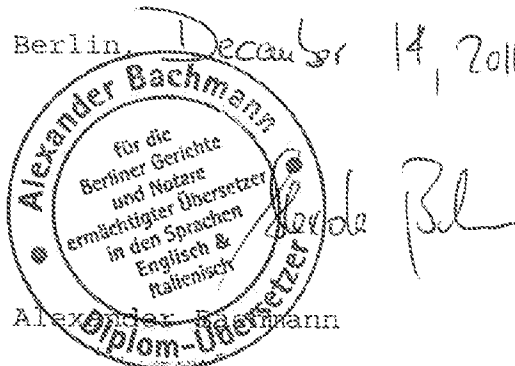 Berlin, December 14, 2011
Alexander Bachmann
für die
Berliner Gerichte
und Notare
ermächtigter Übersetzer
in den Sprachen
Englisch &
Italienisch
Diplom-Übersetzer
Alexander Bachmann